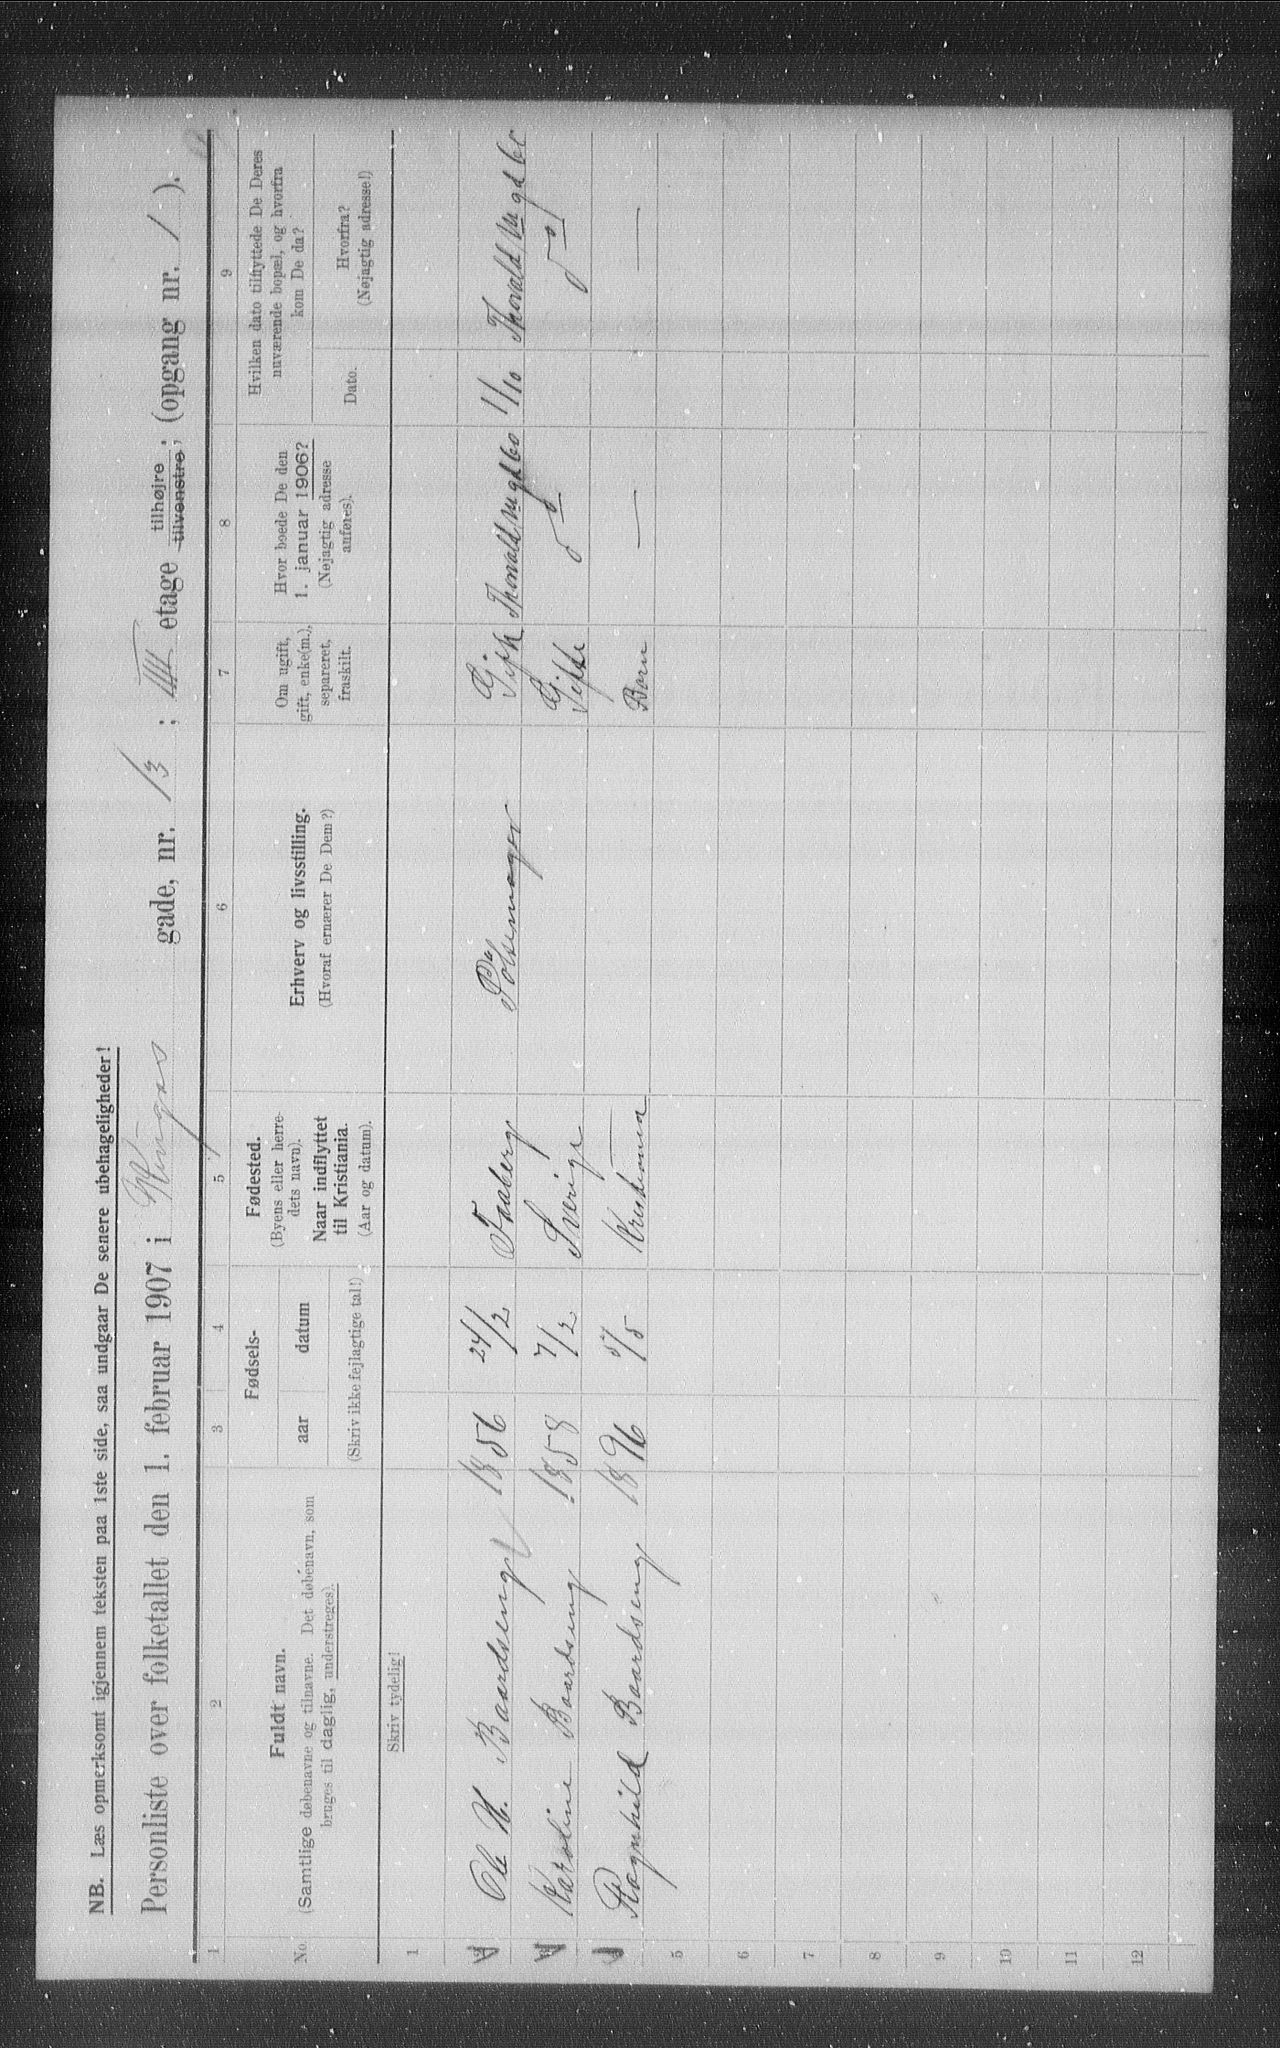 NB. Læs opmerksomt igjennem teksten paa 1ste side, saa undgaar De senere ubehageligheder!
Personliste over folketallet den 1. februar 1907 i Kinges gade, nr. 13 ; III etage tilhøjre tilvenstre; (opgang nr. 1 ).
1 2 3 4 5 6 7 8 9
No.
Fuldt navn.
(Samtlige døbenavne og tilnavne. Det døbenavn, som
bruges til daglig, understreges).
Fødsels-
aar datum
(Skriv ikke fejlagtige tal!)
Fødested.
(Byens eller herre-
dets navn).
Naar indflyttet
til Kristiania.
(Aar og datum).
Erhverv og livsstilling.
(Hvoraf ernærer De Dem?)
Om ugift,
gift, enke(m.),
separeret,
fraskilt.
Hvor boede De den
1. januar 1906?
(Nøjagtig adresse
anføres).
Hvilken dato tilflyttede De Deres
nuværende bopæl, og hvorfra
kom De da?
Dato.
Hvorfra?
(Nøjagtig adresse!)
Skriv tydelig!
1
Ole H. Baardseng 1856 24/2 Faaberg Pølsemager Gift Thorvald M gd 60 1/10 Thorvald M gd 60
Karoline Baardseng 1858 7/2 Sverige Gift do do
Ragnhild Baardseng 1896 5/5 Kristiania Barn — —
5
6
7
8
9
10
11
12